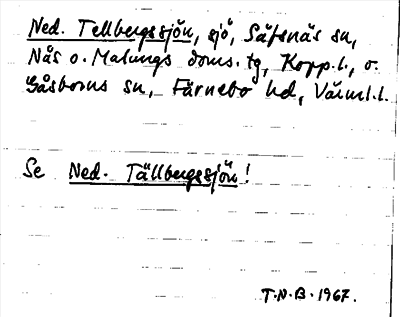 Ned. Tellbergssjön, sjö, Säfsnäs sn,
Nås o. Malungs doms. tg, Kopp. l., o.
Gåsborns sn, Färnebo hd, Värml. l.
Se Ned. Tällbergssjön!
T.N.B. 1967.